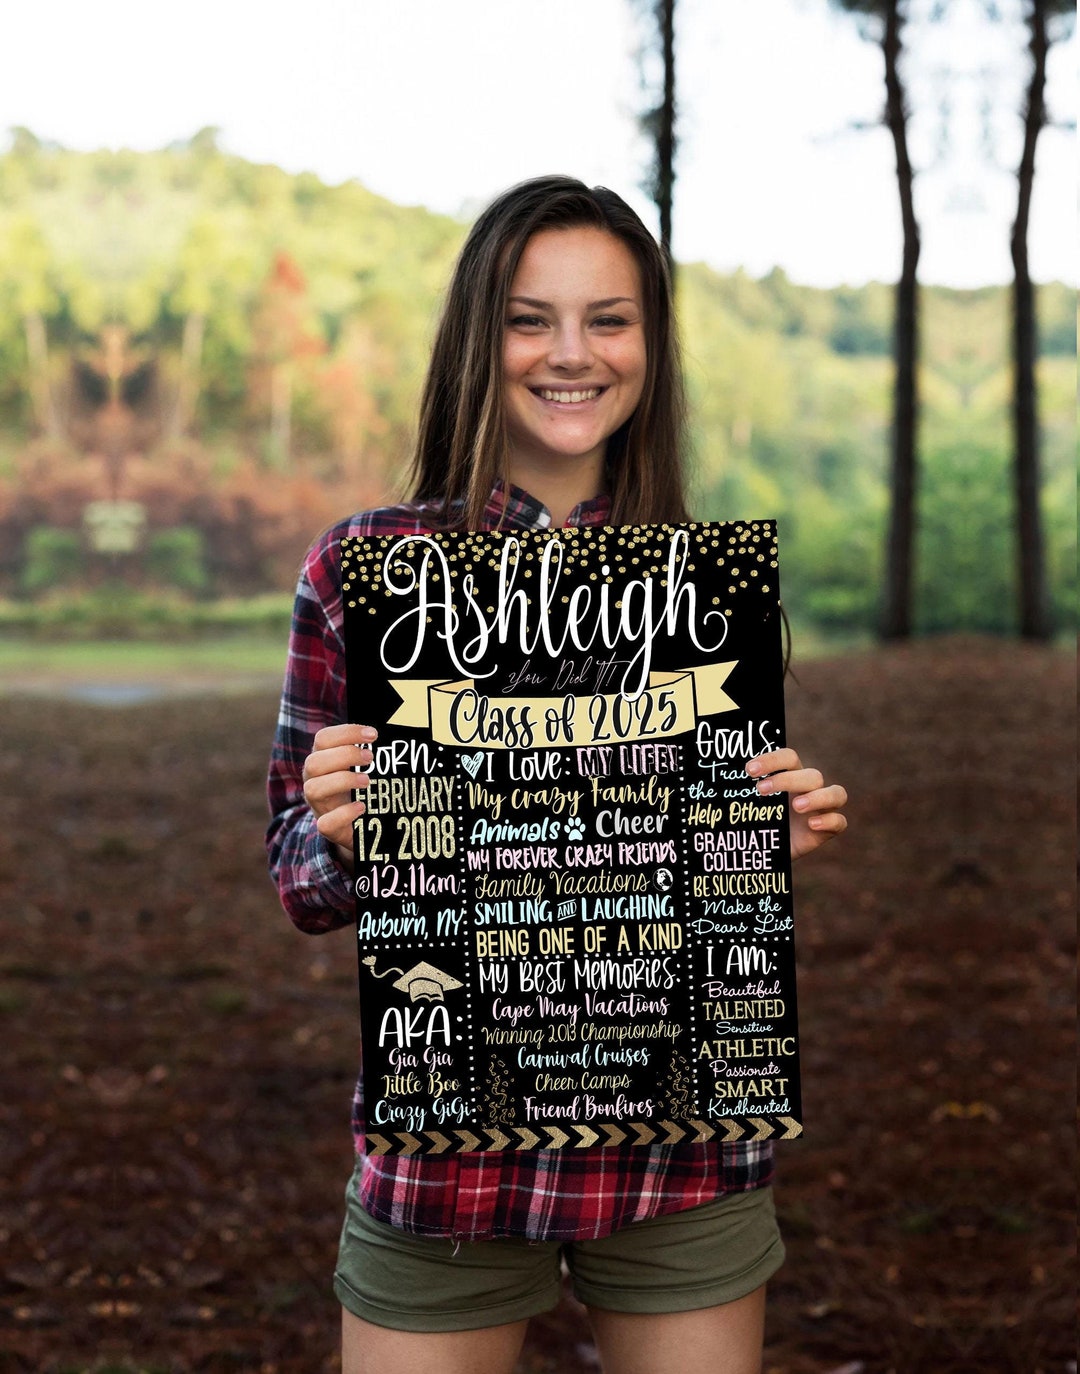 Ashleigh
You Did It!
Class of 2025
Born:
FEBRUARY
12, 2008
@12:11am
in
Auburn, NY
AKA:
Gia Gia
Little Boo
Crazy GiGi
I Love: MY LIFE!
My crazy Family
Animals Cheer
MY FOREVER CRAZY FRIENDS
Family Vacations
SMILING AND LAUGHING
BEING ONE OF A KIND
My Best Memories:
Cape May Vacations
Winning 2013 Championship
Carnival Cruises
Cheer Camps
Friend Bonfires
Goals:
the
Help Others
GRADUATE
COLLEGE
BE SUCCESSFUL
Make the
Deans List
I Am:
Beautiful
TALENTED
Sensitive
ATHLETIC
Passionate
SMART
Kindhearted